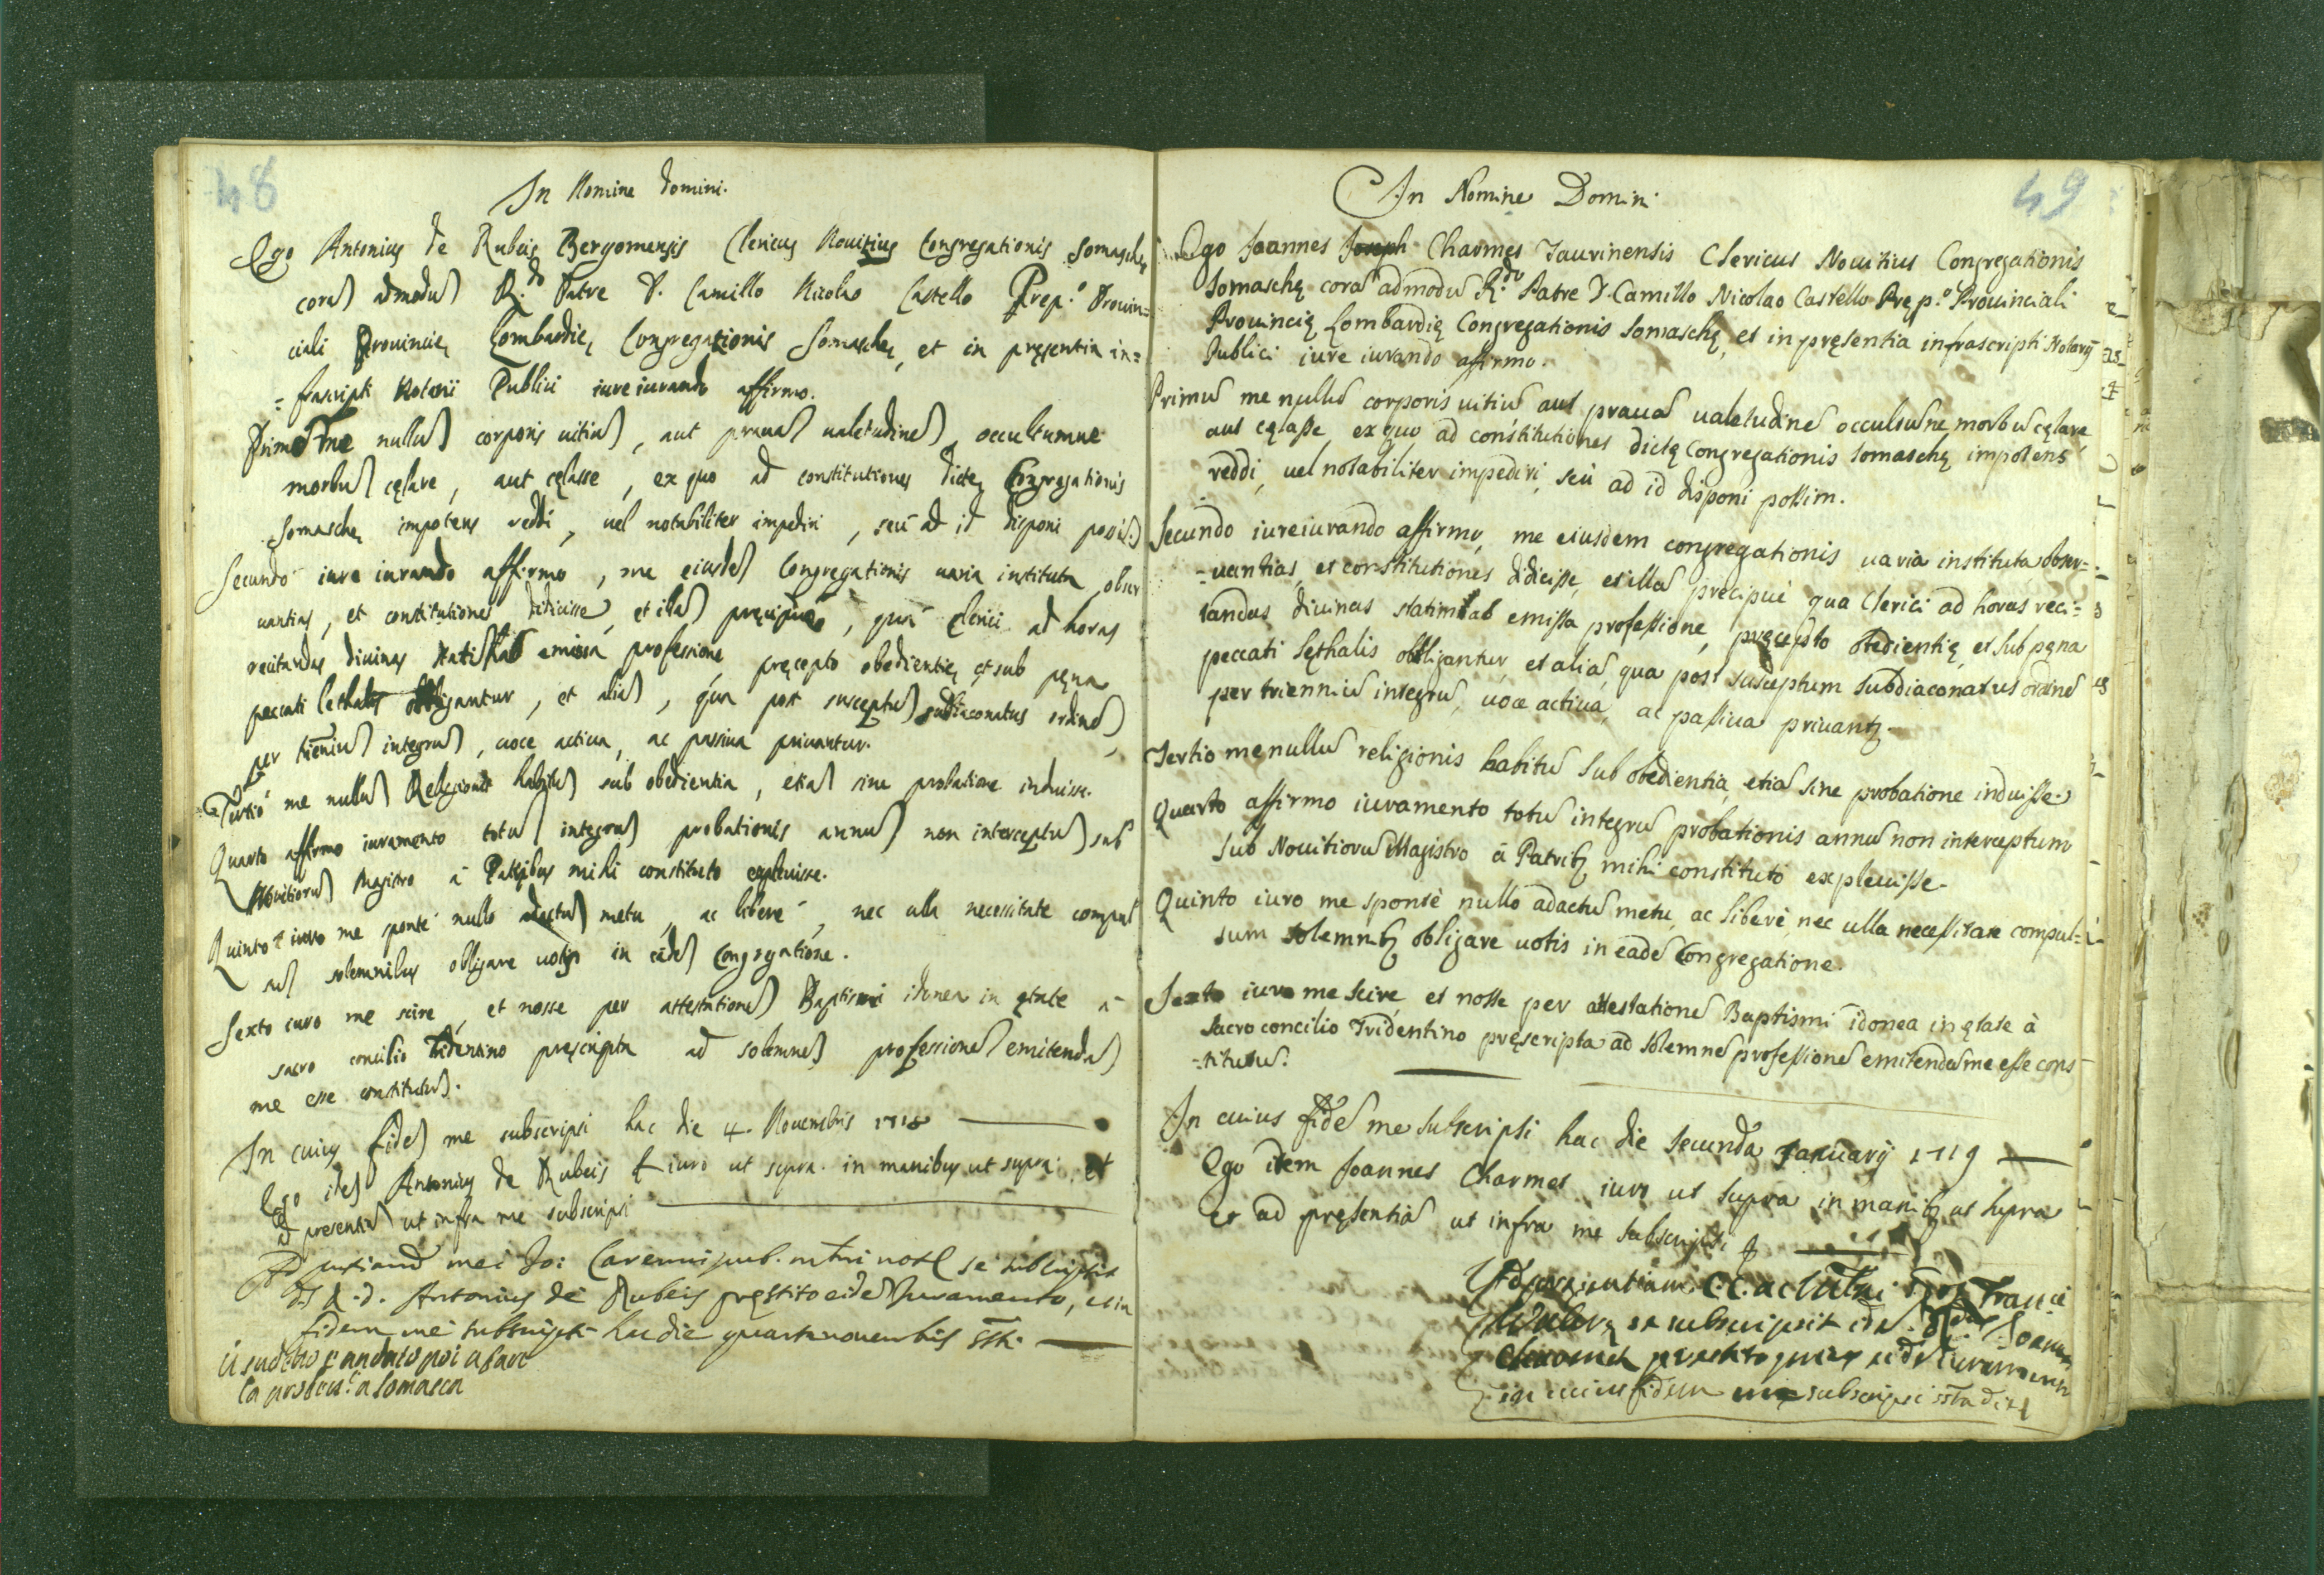 48
In Nomine Domini.
Ego Antonius de Rubeis Bergomensis Clericus Nouitius Congregationis Somaschę
corã admodũ R.do Patre D. Camillo Nicolao Castello Prep.o Prouin=
ciali Prouincię Lombardię Congregationis Somaschę, et in pręsentia in=
=frascripti Notarii Publici iure iurando affirmo.
Primo me nullũ corporis uitiũ, aut prauã ualetudinẽ, occultumue
morbũ cęlare, aut cęlasse, ex quo ad constitutiones dictę Congregationis
Somaschę impotens reddi, uel notabiliter impediri, seù ad id disponi possĩ.
Secundò iure iurando affirmo, me eiusdẽ Congregationis uaria instituta obser
uantias, et constitutiones didicisse, et illã pręcipuè, quà Clerici ad horas
recitandas diuinas statĩ ab emissa professione, pręcepto obedientię et sub pęna
peccati lethalis obligantur, et aliã, quà post susceptũ subdiaconatus ordinẽ
per trieniũ integrũ, uoce actiua, ac passiua priuantur.
Tertiò me nullũ Religionis habitũ sub obedientia, etiã sine probatione induisse.
Quarto affirmo iuramento totũ integrũ probationis annũ non interceptũ sub
Nouitiorũ Magistro à Patribus mihi constituto expleuisse.
Quinto iuro me spontè nullo adactũ metu, ac liberè, nec ulla necessitate compul
sũ solemnibus obligare uotis in eadẽ Congregatione.
Sexto iuro me scire, et nosse per attestationẽ Baptismi idonea in ętate à
sacro concilio Tridentino pręscripta ad solemnẽ professionẽ emitendã
me esse constitutũ.
In cuius fidẽ me subscripsi hac die 4. Nouembris 1718
Ego idẽ Antonius de Rubeis iuro ut supra in manibus ut supra et
ad presentiã ut infra me subscripsi
Ad mei Jo: se subscripsit
d. Antonius de Rubeis pręstito eidẽ Juramento,
fidem me subscripsi hac die quarta nouembris
il sud.to è andato poi a fare
la a Somasca
49
In Nomine Domini
Ego Joannes Joseph Charmes Taurinensis Clericus Nouitius Congregationis
Somaschę corã admodũ R.do Patre D. Camillo Nicolao Castello Pręp.o Prouinciali
Prouincię Lombardię Congregationis Somaschę, et in pręsentia infrascripti Notarij
Publici iure iurando affirmo.
Primũ me nullũ corporis uitiũ aut prauã ualetudinẽ occultũue morbũ cęlare,
aut cęlasse, ex quo ad constitutiones dictę Congregationis Somaschę impotens
reddi, uel notabiliter impediri, seù ad id disponi possim.
Secundo iureiurando affirmo, me eiusdem congregationis uaria instituta, obser=
-uantias, et constitutiones didicisse, et illã prẽcipuè qua Clerici ad horas reci=
tandas diuinas statim ab emissa professione, pręcepto obedientię, et sub pęna
peccati lęthalis obligantur, et aliã, qua post susceptum subdiaconatus ordinẽ
per trienniũ integrũ, uoce actiua, ac passiua priuantʒ.
Tertio me nullũ religionis habitũ sub obedientia, etiã sine probatione induisse.
Quarto affirmo iuramento totũ integrũ probationis annũ non interceptum
sub Nouitiorũ Magistro à Patribʒ mihi constituto expleuisse.
Quinto iuro me spontè nullo adactũ metu, ac liberè, nec ulla necessitate compul=
sum solemnibʒ obligare uotis in eadẽ Congregatione.
Sexto iuro me scire, et nosse per attestationẽ Baptismi idonea in ętate à
sacro concilio Tridentino pręscripta ad solemnẽ professionẽ emitendã me esse cons
=titutũ.
In cuius fidẽ me subscripsi hac die secunda January 1719
Ego idem Joannes Charmes iuro ut supra in manibʒ ut supra
et ad pręsentiã ut infra me subscripsi
Ad presentiam Franc
se subscripsit Joannes
prestito iuramento
in cuius fidem me subscripsi